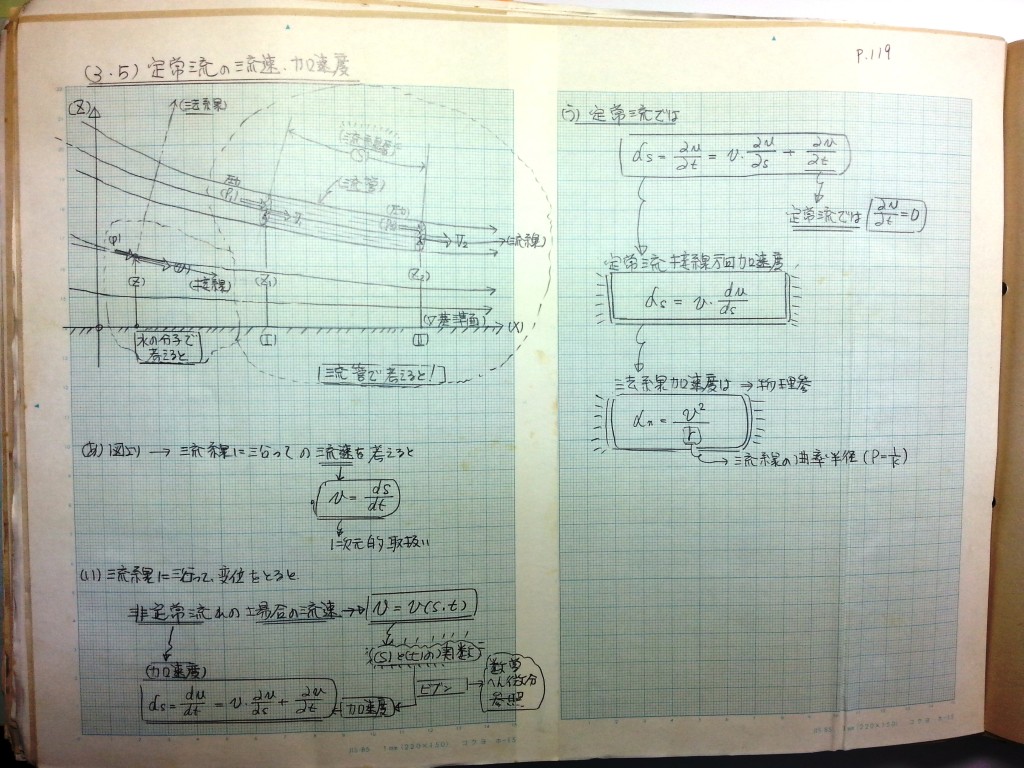 P.119
(3.5) 定常流の流速・加速度
(Z)
(法線)
(流管長)
(S)
(流管)
V₁
V₂
(流線)
(接線)
(Z)
(Z₁)
(Z₂)
(▽基準面)
(X)
(I)
(II)
水の分子で
考えると
1流管で考えると!
(あ) 図より → 流線に沿っての流速を考えると
v = ds/dt
1次元的取扱い
(い) 流線に沿って、変位をとると
非定常流れの場合の流速 → v = v(s.t)
(S)と(t)の関数
(加速度)
αs = du/dt = v・∂u/∂s + ∂u/∂t
加速度
ビブン
数学
へん微分
参照
(う) 定常流では
αs = ∂u/∂t = v・∂u/∂s + ∂u/∂t
定常流では ∂u/∂t = 0
定常流接線方向加速度
αs = v・du/ds
法線加速度は → 物理参
αn = v²/r
流線の曲率半径 (P=1/k)